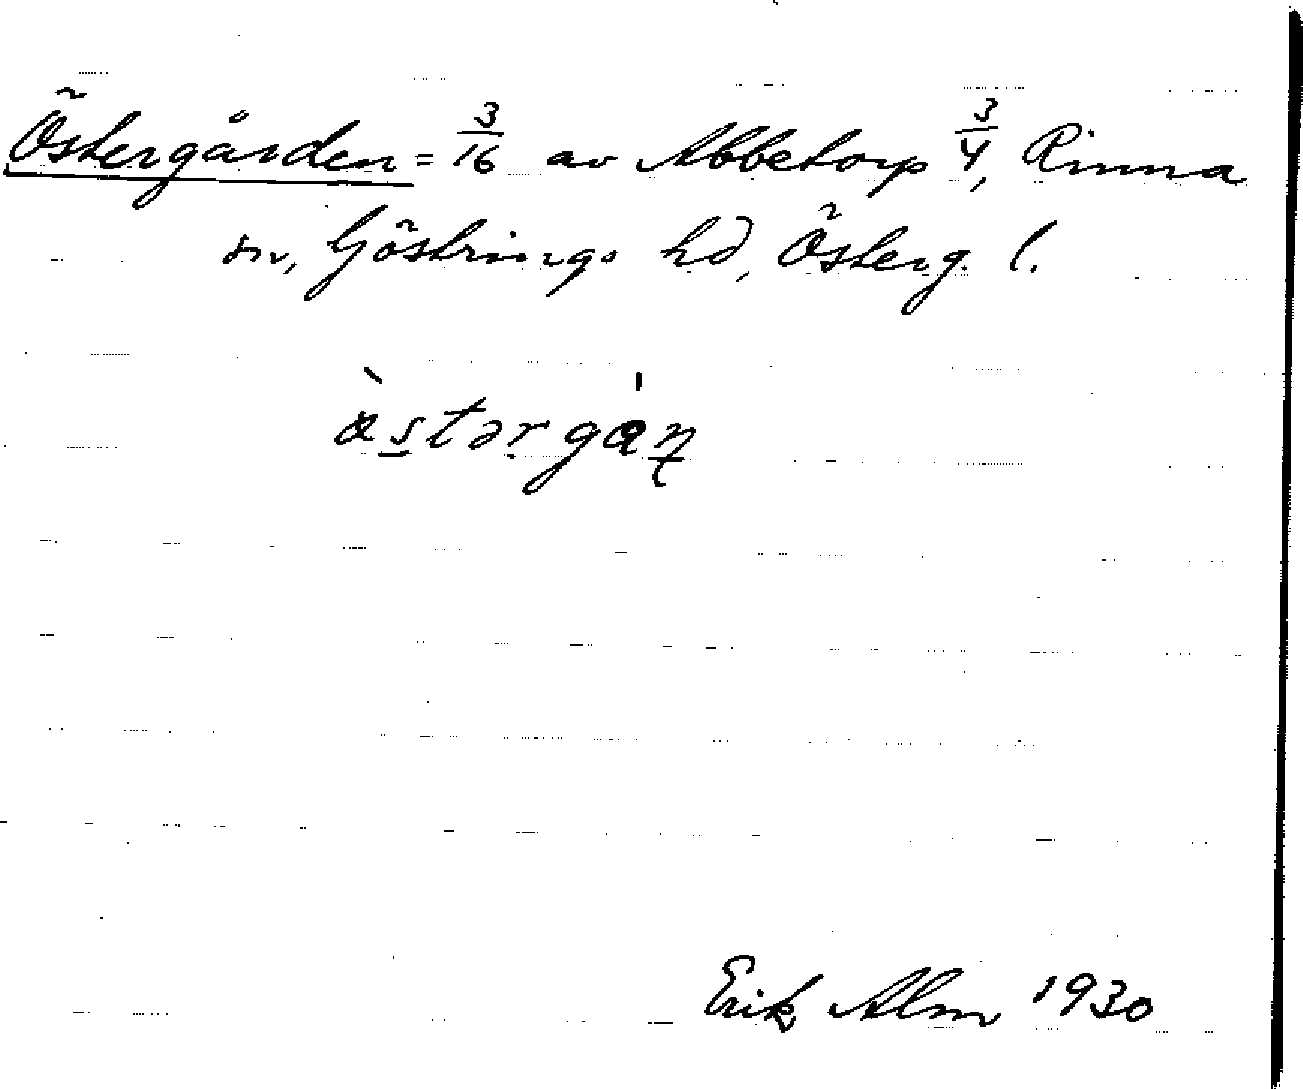 Östergården = 3/16 av Abbetorp 3/4, Rinna
sn, Göstrings hd, Österg. l.
Erik Alm 1930